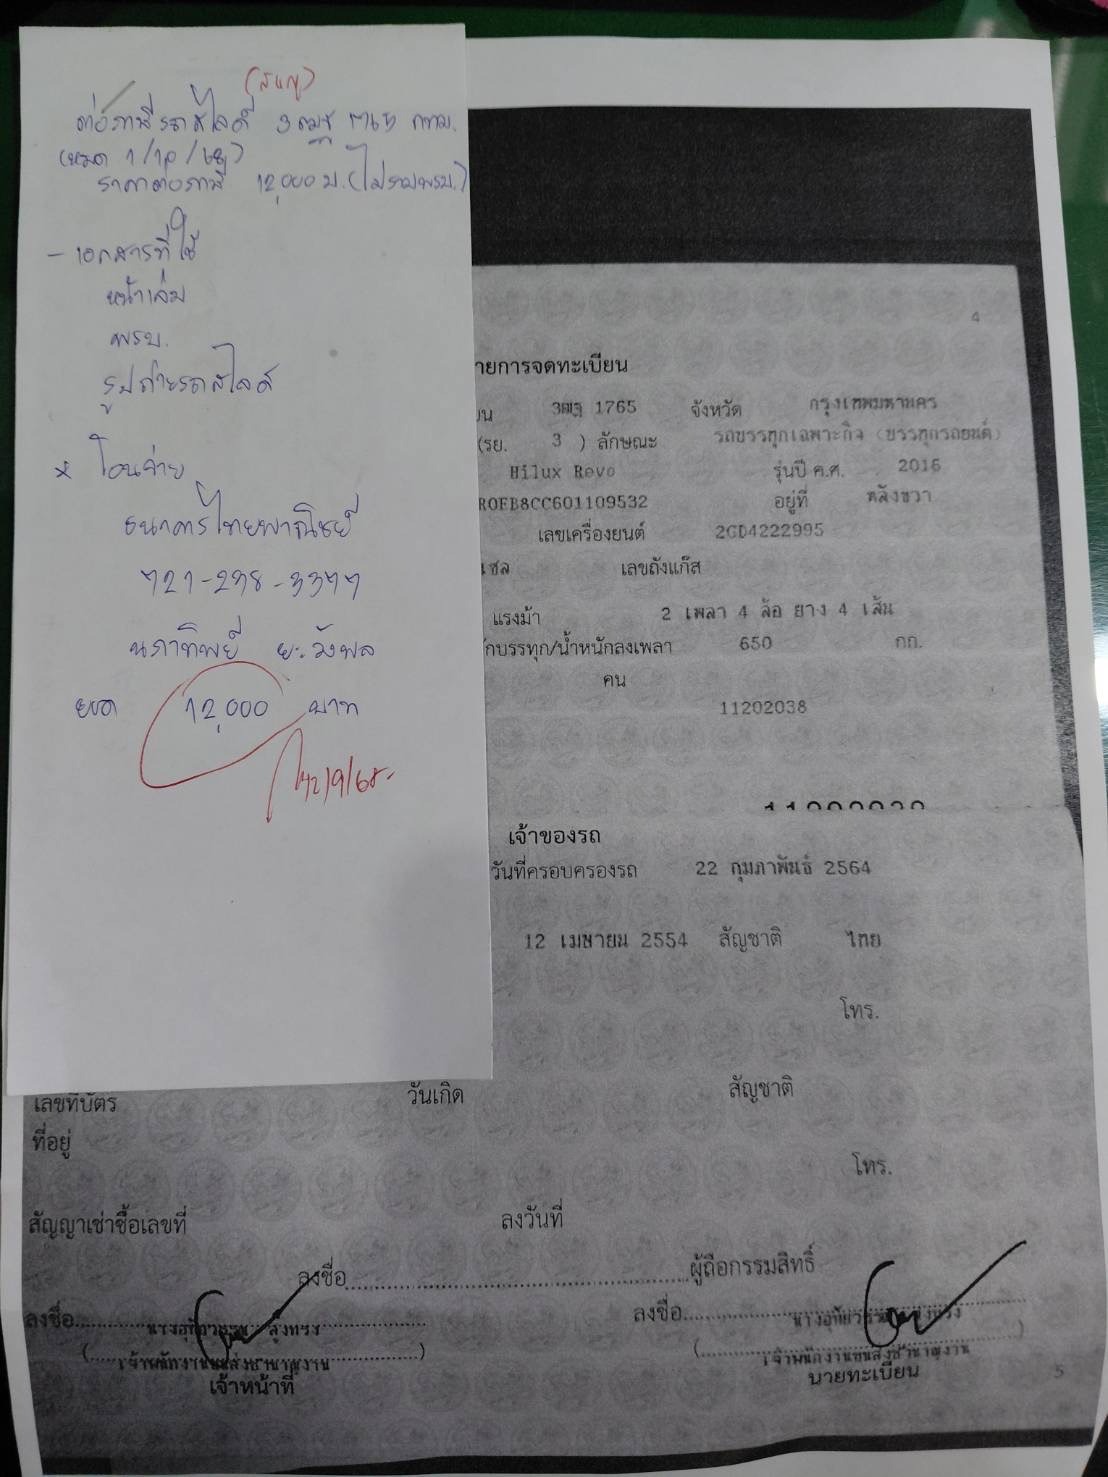 ต่อภาษีรถสไลด์ 3ฒฐ 1765 กทม.
(หมด 1/10/68)
ราคาต่อภาษี 12,000 บ. (ไม่รวมพรบ.)
- เอกสารที่ใช้
หน้าเล่ม
พรบ.
รูปถ่ายรถสไลด์
* โอนจ่าย
ธนาคารไทยพาณิชย์
721-238-3377
นภาทิพย์ ยะวังพล
ยอด 12,000 บาท
4
ายการจดทะเบียน
1765 จังหวัด กรุงเทพมหานคร
(รย. 3 ) ลักษณะ รถบรรทุกเฉพาะกิจ (บรรทุกรถยนต์)
Hilux Revo รุ่นปี ค.ศ. 2016
R0FB8CC601109532 อยู่ที่ หลังขวา
เลขเครื่องยนต์ 2GD4222995
เซล เลขถังแก๊ส
แรงม้า 2 เพลา 4 ล้อ ยาง 4 เส้น
กบรรทุก/น้ำหนักลงเพลา 650 กก.
คน
11202038
เจ้าของรถ
วันที่ครอบครองรถ 22 กุมภาพันธ์ 2564
12 เมษายน 2554 สัญชาติ ไทย
โทร.
เลขที่บัตร วันเกิด สัญชาติ
ที่อยู่
โทร.
สัญญาเช่าซื้อเลขที่ ลงวันที่
ลงชื่อ ผู้ถือกรรมสิทธิ์
ลงชื่อ ลงชื่อ
เจ้าพนักงานขนส่งชำนาญงาน เจ้าพนักงานขนส่งชำนาญงาน
เจ้าหน้าที่ นายทะเบียน
5